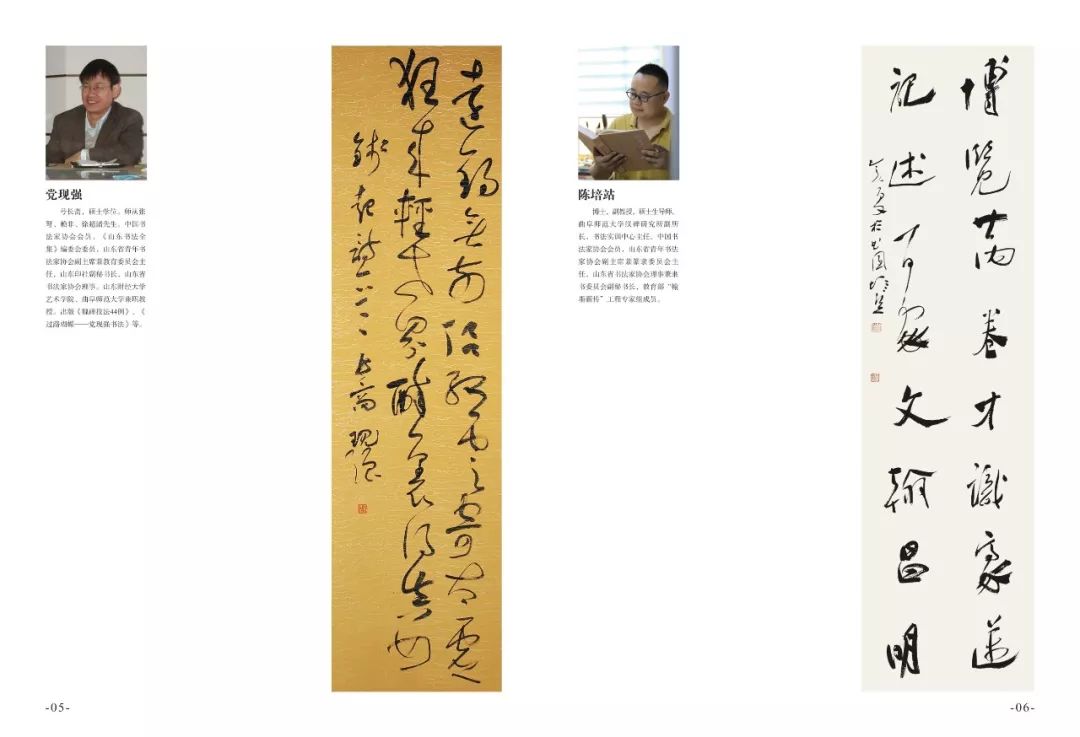 党现强
号长斋，硕士学位。师从张
弩、赖非、徐超诸先生。中国书
法家协会会员，《山东书法全
集》编委会委员，山东省青年书
法家协会副主席兼教育委员会主
任，山东印社副秘书长，山东省
书法家协会理事。山东财经大学
艺术学院、曲阜师范大学兼职教
授。出版《魏碑技法44例》、《
过路蝴蝶——党现强书法》等。
远鹤无前侣孤云寄太虚
狂来轻世界醉里得真如
钱起诗 长斋 现强
-05-
陈培站
博士，副教授，硕士生导师，
曲阜师范大学汉碑研究所副所
长、书法实训中心主任，中国书
法家协会会员，山东省青年书法
家协会副主席兼篆隶委员会主
任，山东省书法家协会理事兼隶
书委员会副秘书长，教育部“翰
墨薪传”工程专家组成员。
博览万卷才识豪逸
记述百家文翰昌明
-06-